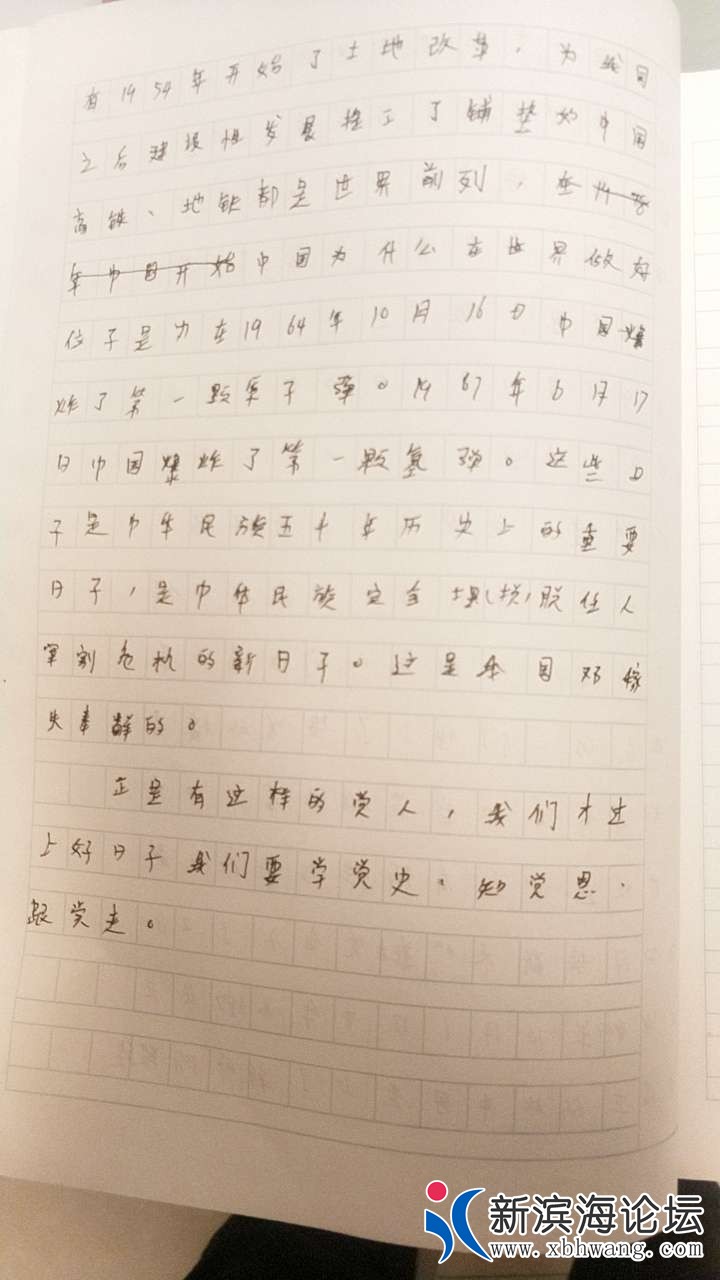 有1954年开始了土地改革，为我国
之后建设性发展搭了铺垫如中国
高铁、地铁都是世界前列，在
年中国开始中国为什么在世界做好
位子是为在1964年10月16日中国爆
炸了第一颗原子弹。1967年6月17
日中国爆炸了第一颗氢弹。这些日
子是中华民族五十年历史上的重要
日子，是中华民族完全 脱任人
宰割危机的新日子。这是全国
失奉
正是有这样的党人，我们才过
上好日子我们要学党史、知党恩、
跟党走。
新滨海论坛
www.xbhwang.com